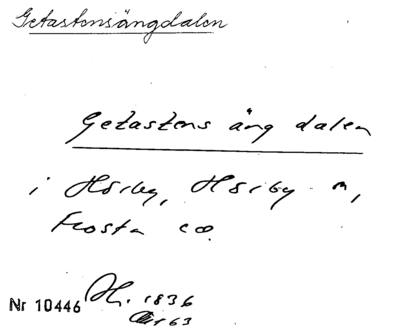 Getastensängdalen
Getastens äng dalen
i Hörby, Hörby sn,
Frosta hd.
Nr 10446 Ah. 1836
163